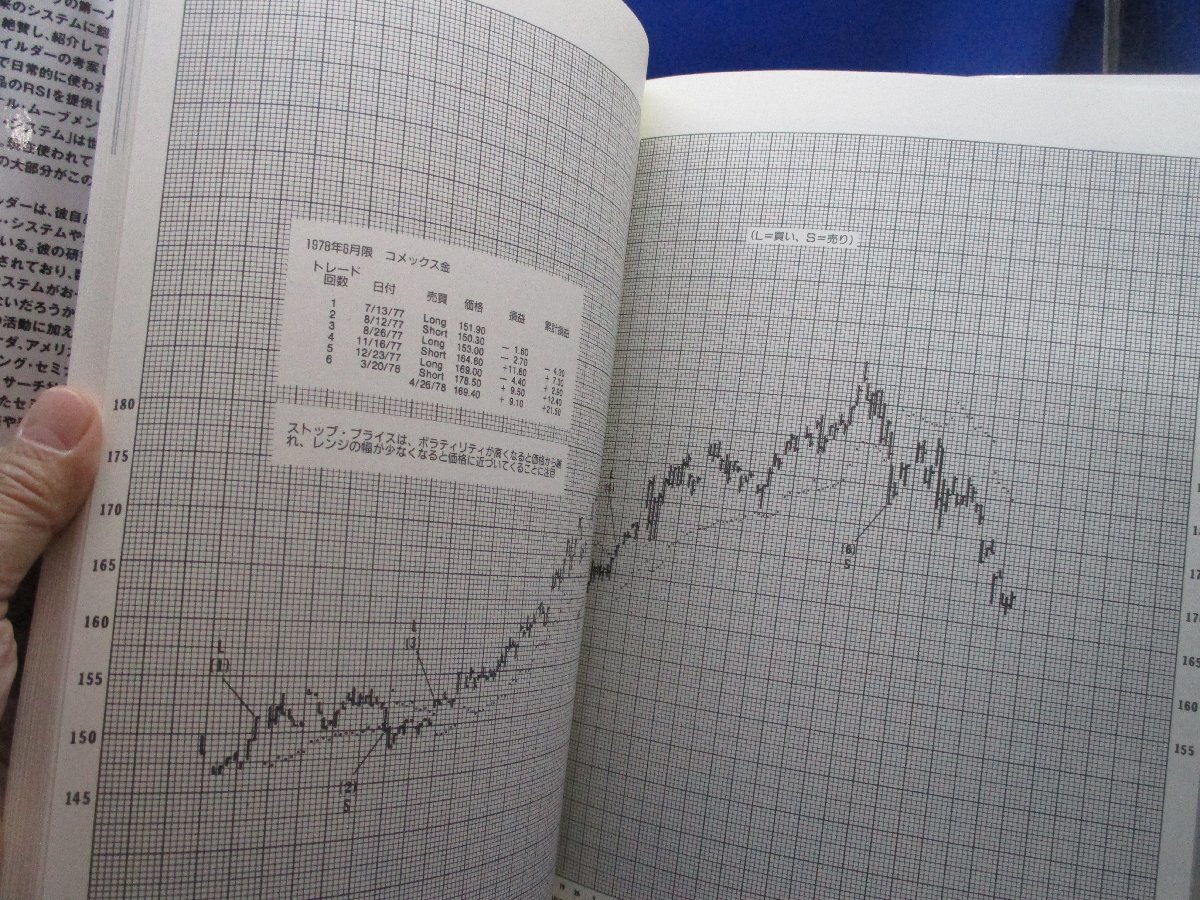 の第一人
来のシステムに飽
絶賛し、紹介して
イルダーの考案し
で日常的に使われ
品のRSIを提供し
ール・ムーブメン
・システム」は世
、現在使われて
の大部分がこの
ルダーは、彼自
ル・システムや
いる。彼の研
されており、
ステムがお
ないだろうか
の活動に加え
ダ、アメリカ
ング・セミナ
サーチ
たセ
1978年6月限 コメックス金
トレード回数 日付 売買 価格 損益 累計損益
1 7/13/77 Long 151.90
2 8/12/77 Short 150.30 － 1.60
3 8/26/77 Long 153.00 － 2.70 － 4.30
4 11/16/77 Short 164.60 ＋11.60 ＋ 7.30
5 12/23/77 Long 169.00 － 4.40 ＋ 2.90
6 3/20/78 Short 178.50 ＋ 9.50 ＋12.40
4/26/78 169.40 ＋ 9.10 ＋21.50
ストップ・プライスは、ボラティリティが高くなると価格から離
れ、レンジの幅が少なくなると価格に近づいてくることに注目
180
175
170
165
160
155
150
145
L
(1)
(2)
S
L
(3)
(L＝買い、S＝売り)
(6)
S
165
160
155
19 26